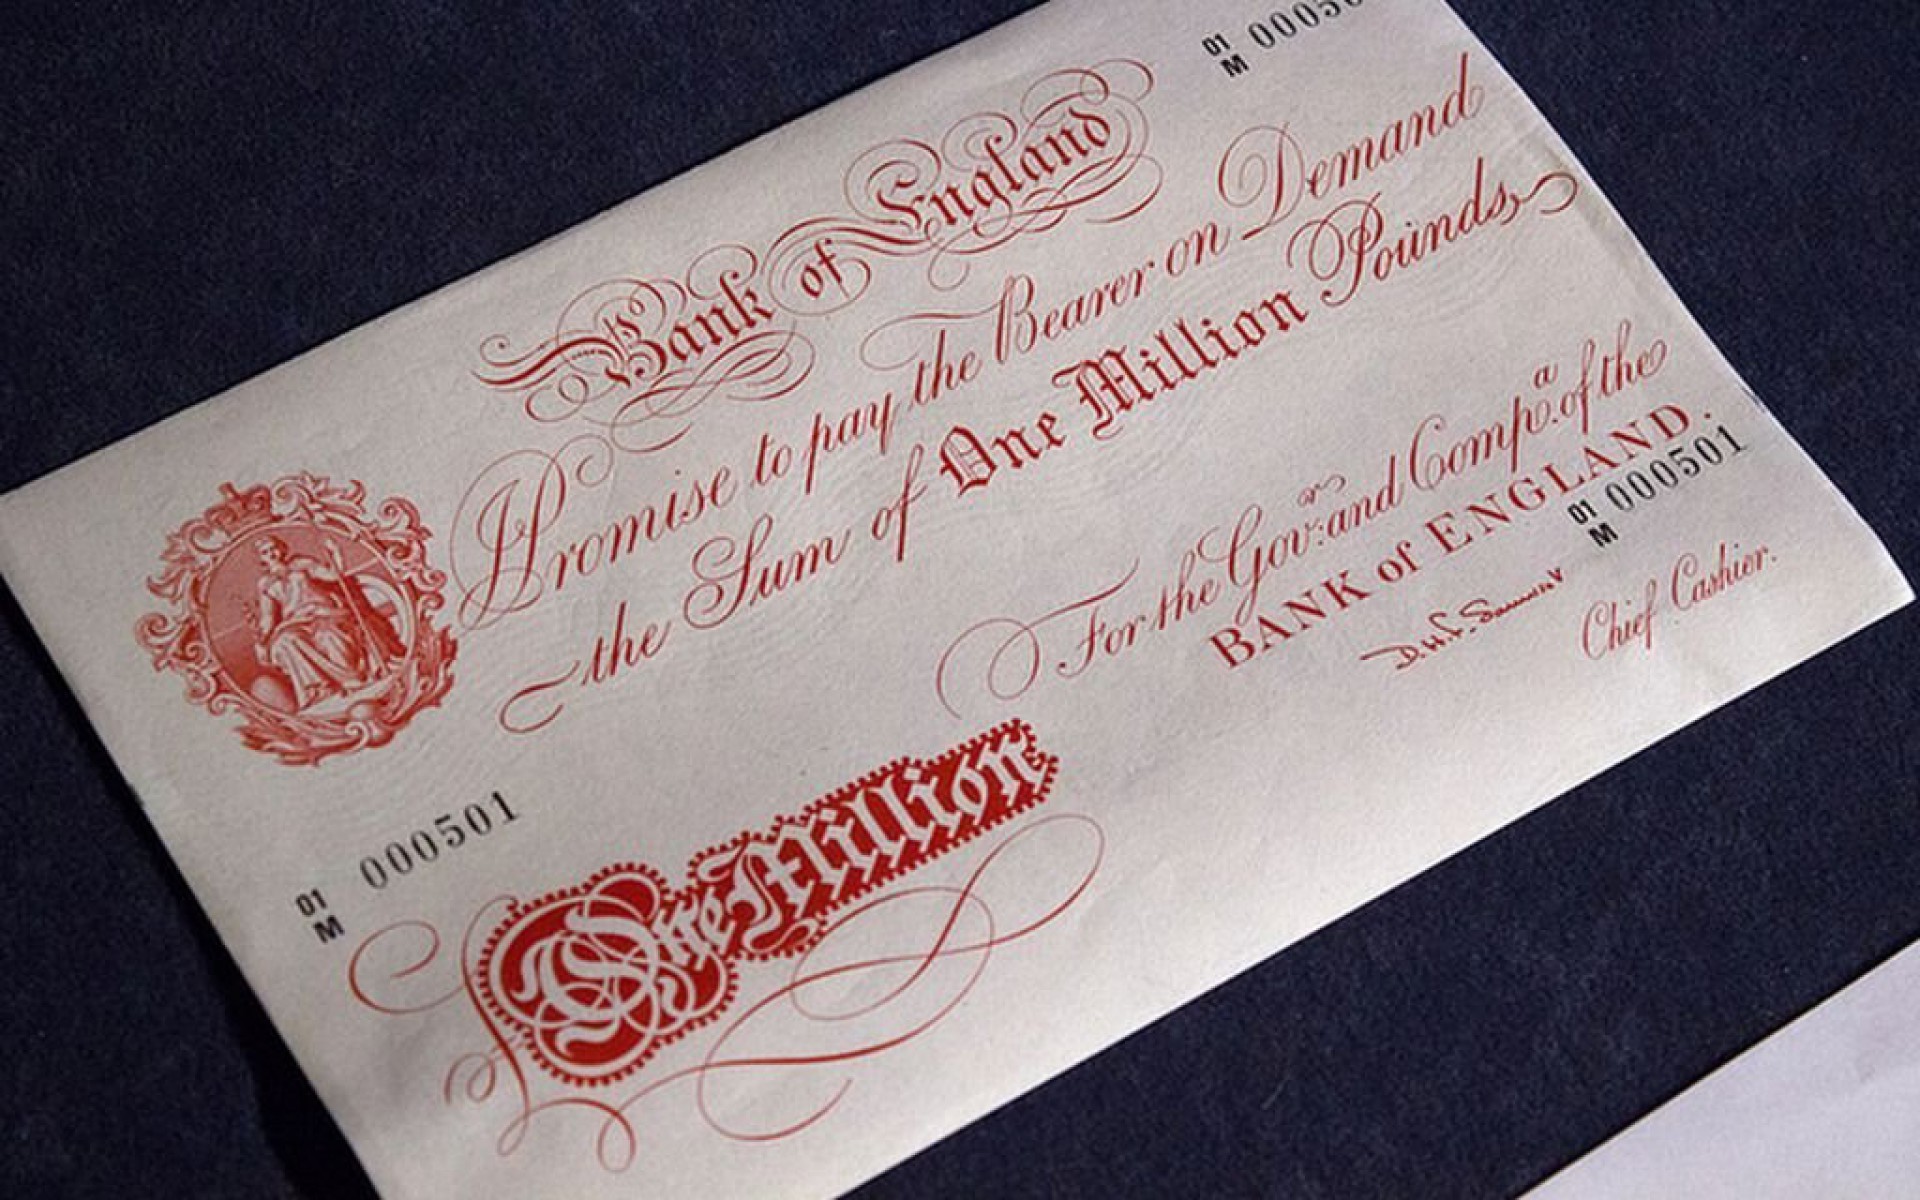 01
M 00050
Bank of England
Promise to pay the Bearer on Demand
the Sum of One Million Pounds
For the Govr: and Compa. of the
BANK of ENGLAND.
01
M 000501
Chief Cashier.
01
M 000501
One Million